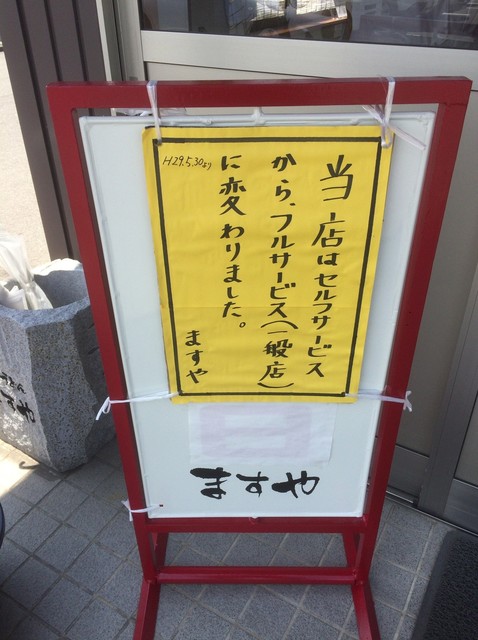 当店はセルフサービス
から、フルサービス(一般店)
に変わりました。
ますや
H29.5.30より
ますや